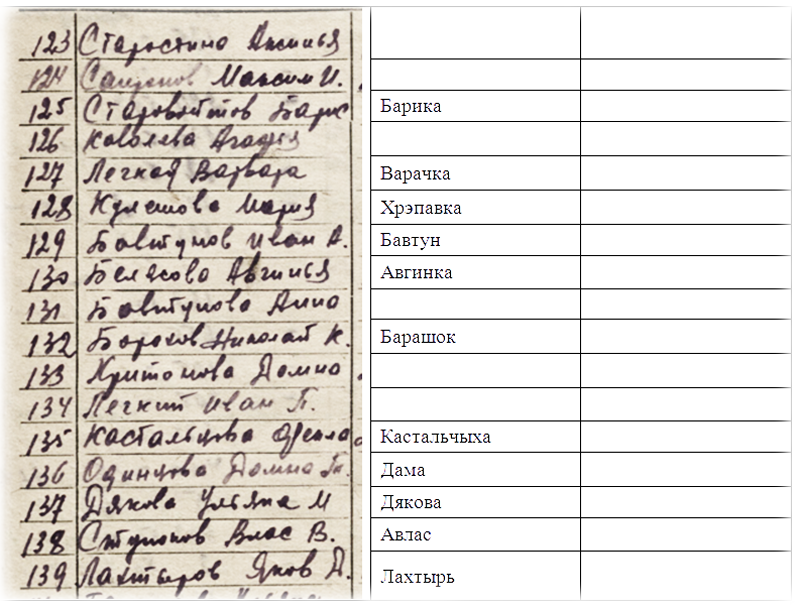 123 Старостина Аксинья
124 Максим И.
125 Старовойтов Барис Барика
126 Ковалева Агафья
127 Легкая Варвара Варачка
128 Кулешова Мария Хрэпавка
129 Бавтунов Иван А. Бавтун
130 Белясова Авгинья Авгинка
131 Бавтунова Анна
132 Борохов Николай К. Барашок
133 Хритонова Домна
134 Легкий Иван П.
135 Кастальцова Фекла Кастальчыха
136 Одинцова Домна Т. Дама
137 Дякова Ульяна М Дякова
138 Влас В. Авлас
139 Лахтыров Яков Д. Лахтырь